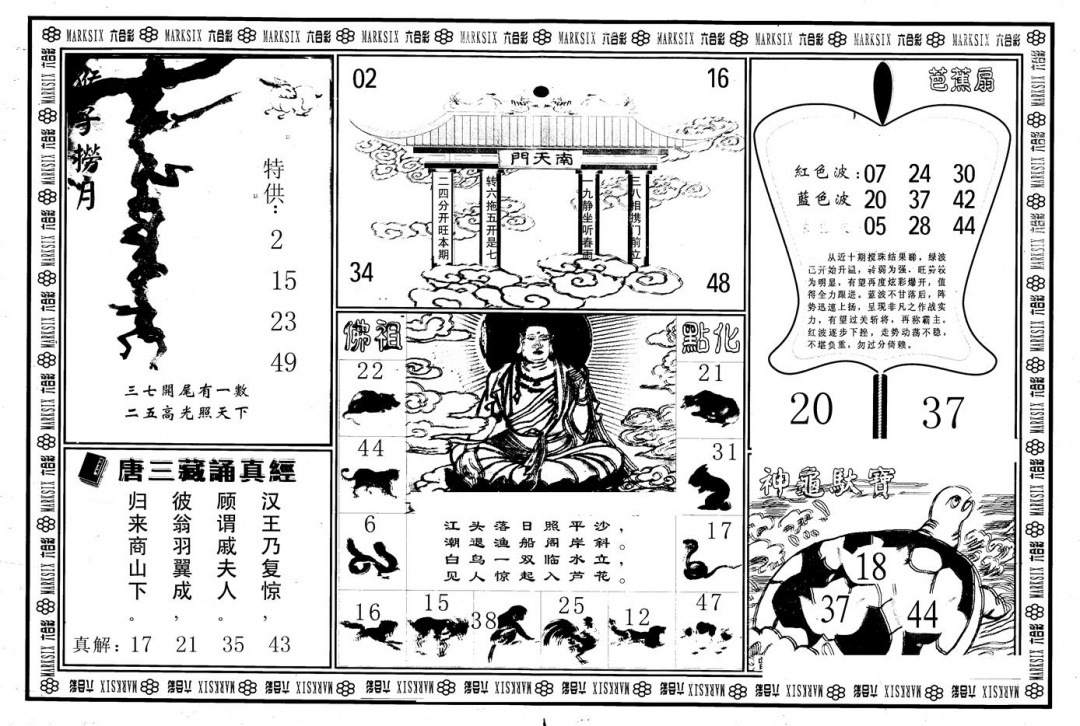 MARKSIX 六合彩 MARKSIX 六合彩 MARKSIX 六合彩 MARKSIX 六合彩 MARKSIX 六合彩 MARKSIX 六合彩 MARKSIX 六合彩 MARKSIX 六合彩 MARKSIX 六合彩 MARKSIX 六合彩
猴子撈月
特供:
2
15
23
49
三七開尾有一數
二五高光照天下
唐三藏誦真經
汉王乃复惊,
顾谓戚夫人。
彼翁羽翼成,
归来商山下。
真解: 17 21 35 43
02
16
南天門
三八相携门前立
一九静坐听春雨
转六拖五开是七
二四分开旺本期
34
48
佛祖
點化
22
21
44
31
6
17
16
15
38
25
12
47
江头落日照平沙,
潮退渔船阁岸斜。
白鸟一双临水立,
见人惊起入芦花。
芭蕉扇
紅色波: 07 24 30
藍色波 20 37 42
05 28 44
从近十期搅珠结果睇, 绿波
已开始升温, 转弱为强, 旺势较
为明显, 有望再度炫彩爆开, 值
得全力跟进。蓝波不甘落后, 阵
势迅速上扬, 呈现非凡之作战实
力, 有望过关斩将, 再称霸主。
红波逐步下挫, 走势动荡不稳,
不堪负重, 勿过分倚赖。
20
37
神龜馱寶
18
37
44